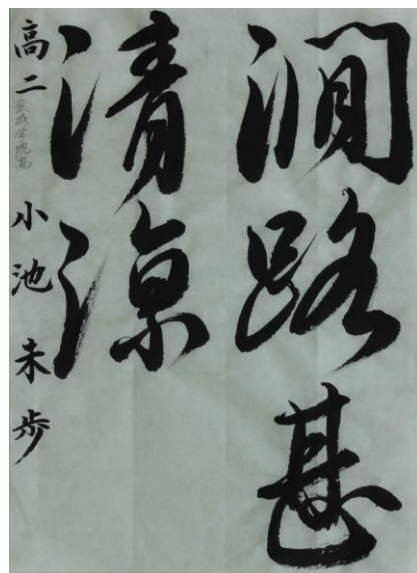 澗路甚
清涼
高二
小池未歩